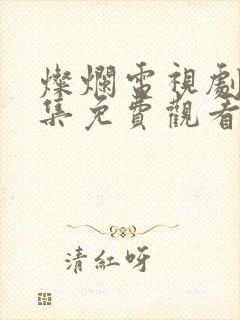 燦爛電視劇
集免費觀看
清紅呀